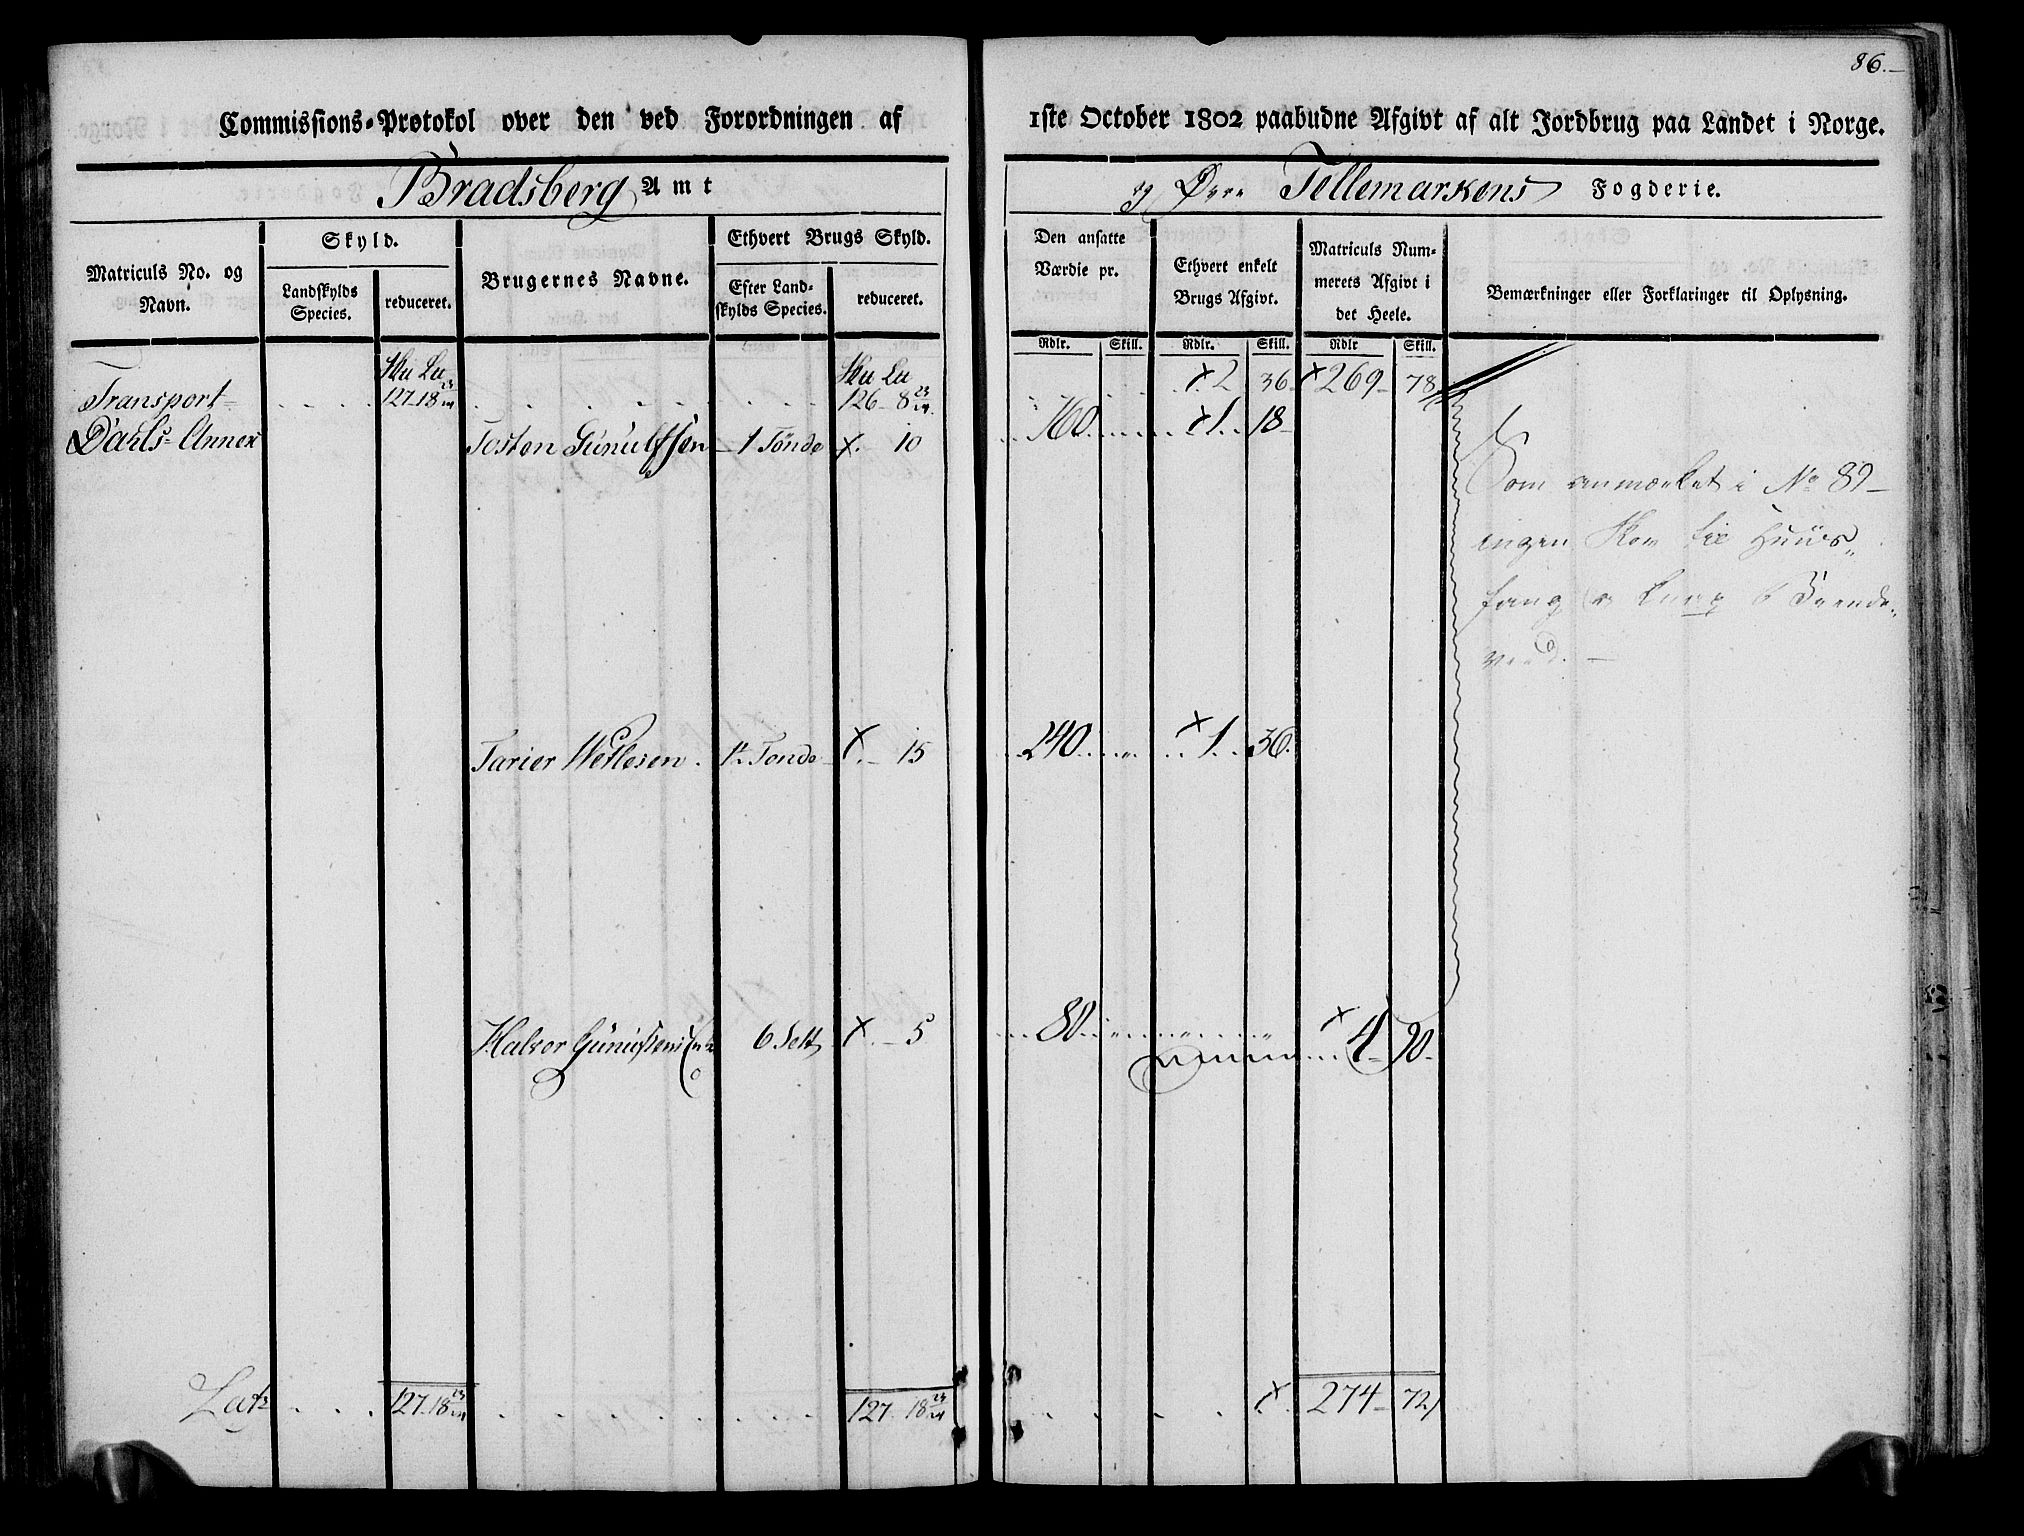 86.
Commissions-Protokol over den ved Forordningen af 1ste October 1802 paabudne Afgivt af alt Jordbrug paa Landet i Norge.
Bradsberg Amt
og Øvre Tellemarkens Fogderie.
Matriculs No. og Navn.
Skyld.
Landskylds Species.
reduceret.
Brugernes Navne.
Ethvert Brugs Skyld.
Efter Landskylds Species.
reduceret.
Den ansatte Værdie pr.
Ethvert enkelt Brugs Afgivt.
Matriculs Nummerets Afgivt i det Heele.
Bemærkninger eller Forklaringer til Oplysning.
Rdlr. Skill. Rdlr. Skill. Rdlr Skill.
Transport 127. 18 23/24 126 8 23/24 x 2 36 x 269 78
Dahls Annex Tosten Gunulfsen 1 Tönde x. 10 160 x 1 18
Som anmærket i No 89
ingen
fang
Tarier Wetlesen. Tonde x. 15 240 x 1. 36.
Halvor 6 Sett x. 5 80 x 4 90
Lats 127. 18 23/24 127 18 23/24 x 274 72